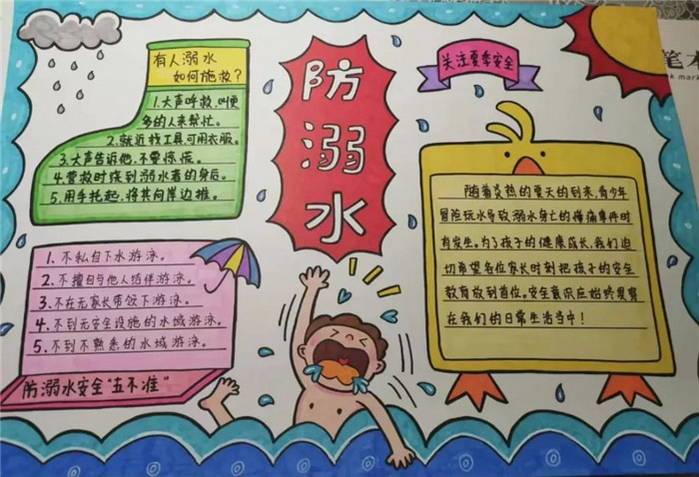 有人溺水
如何施救？
1.大声呼救,叫更
多的人来帮忙。
2.就近找工具,可用衣服。
3.大声告诉他,不要惊慌。
4.营救时绕到溺水者的身后。
5.用手托起,将其向岸边推。
防
溺
水
关注夏季安全
1.不私自下水游泳。
2.不擅自与他人结伴游泳。
3.不在无家长带领下游泳。
4.不到无安全设施的水域游泳。
5.不到不熟悉的水域游泳。
防溺水安全"五不准"
随着炎热的夏天的到来,青少年
冒险玩水导致溺水身亡的惨痛事件时
有发生。为了孩子的健康成长,我们迫
切希望各位家长时刻把孩子的安全
教育放到首位。安全意识应始终贯穿
在我们的日常生活当中！
笔
mark